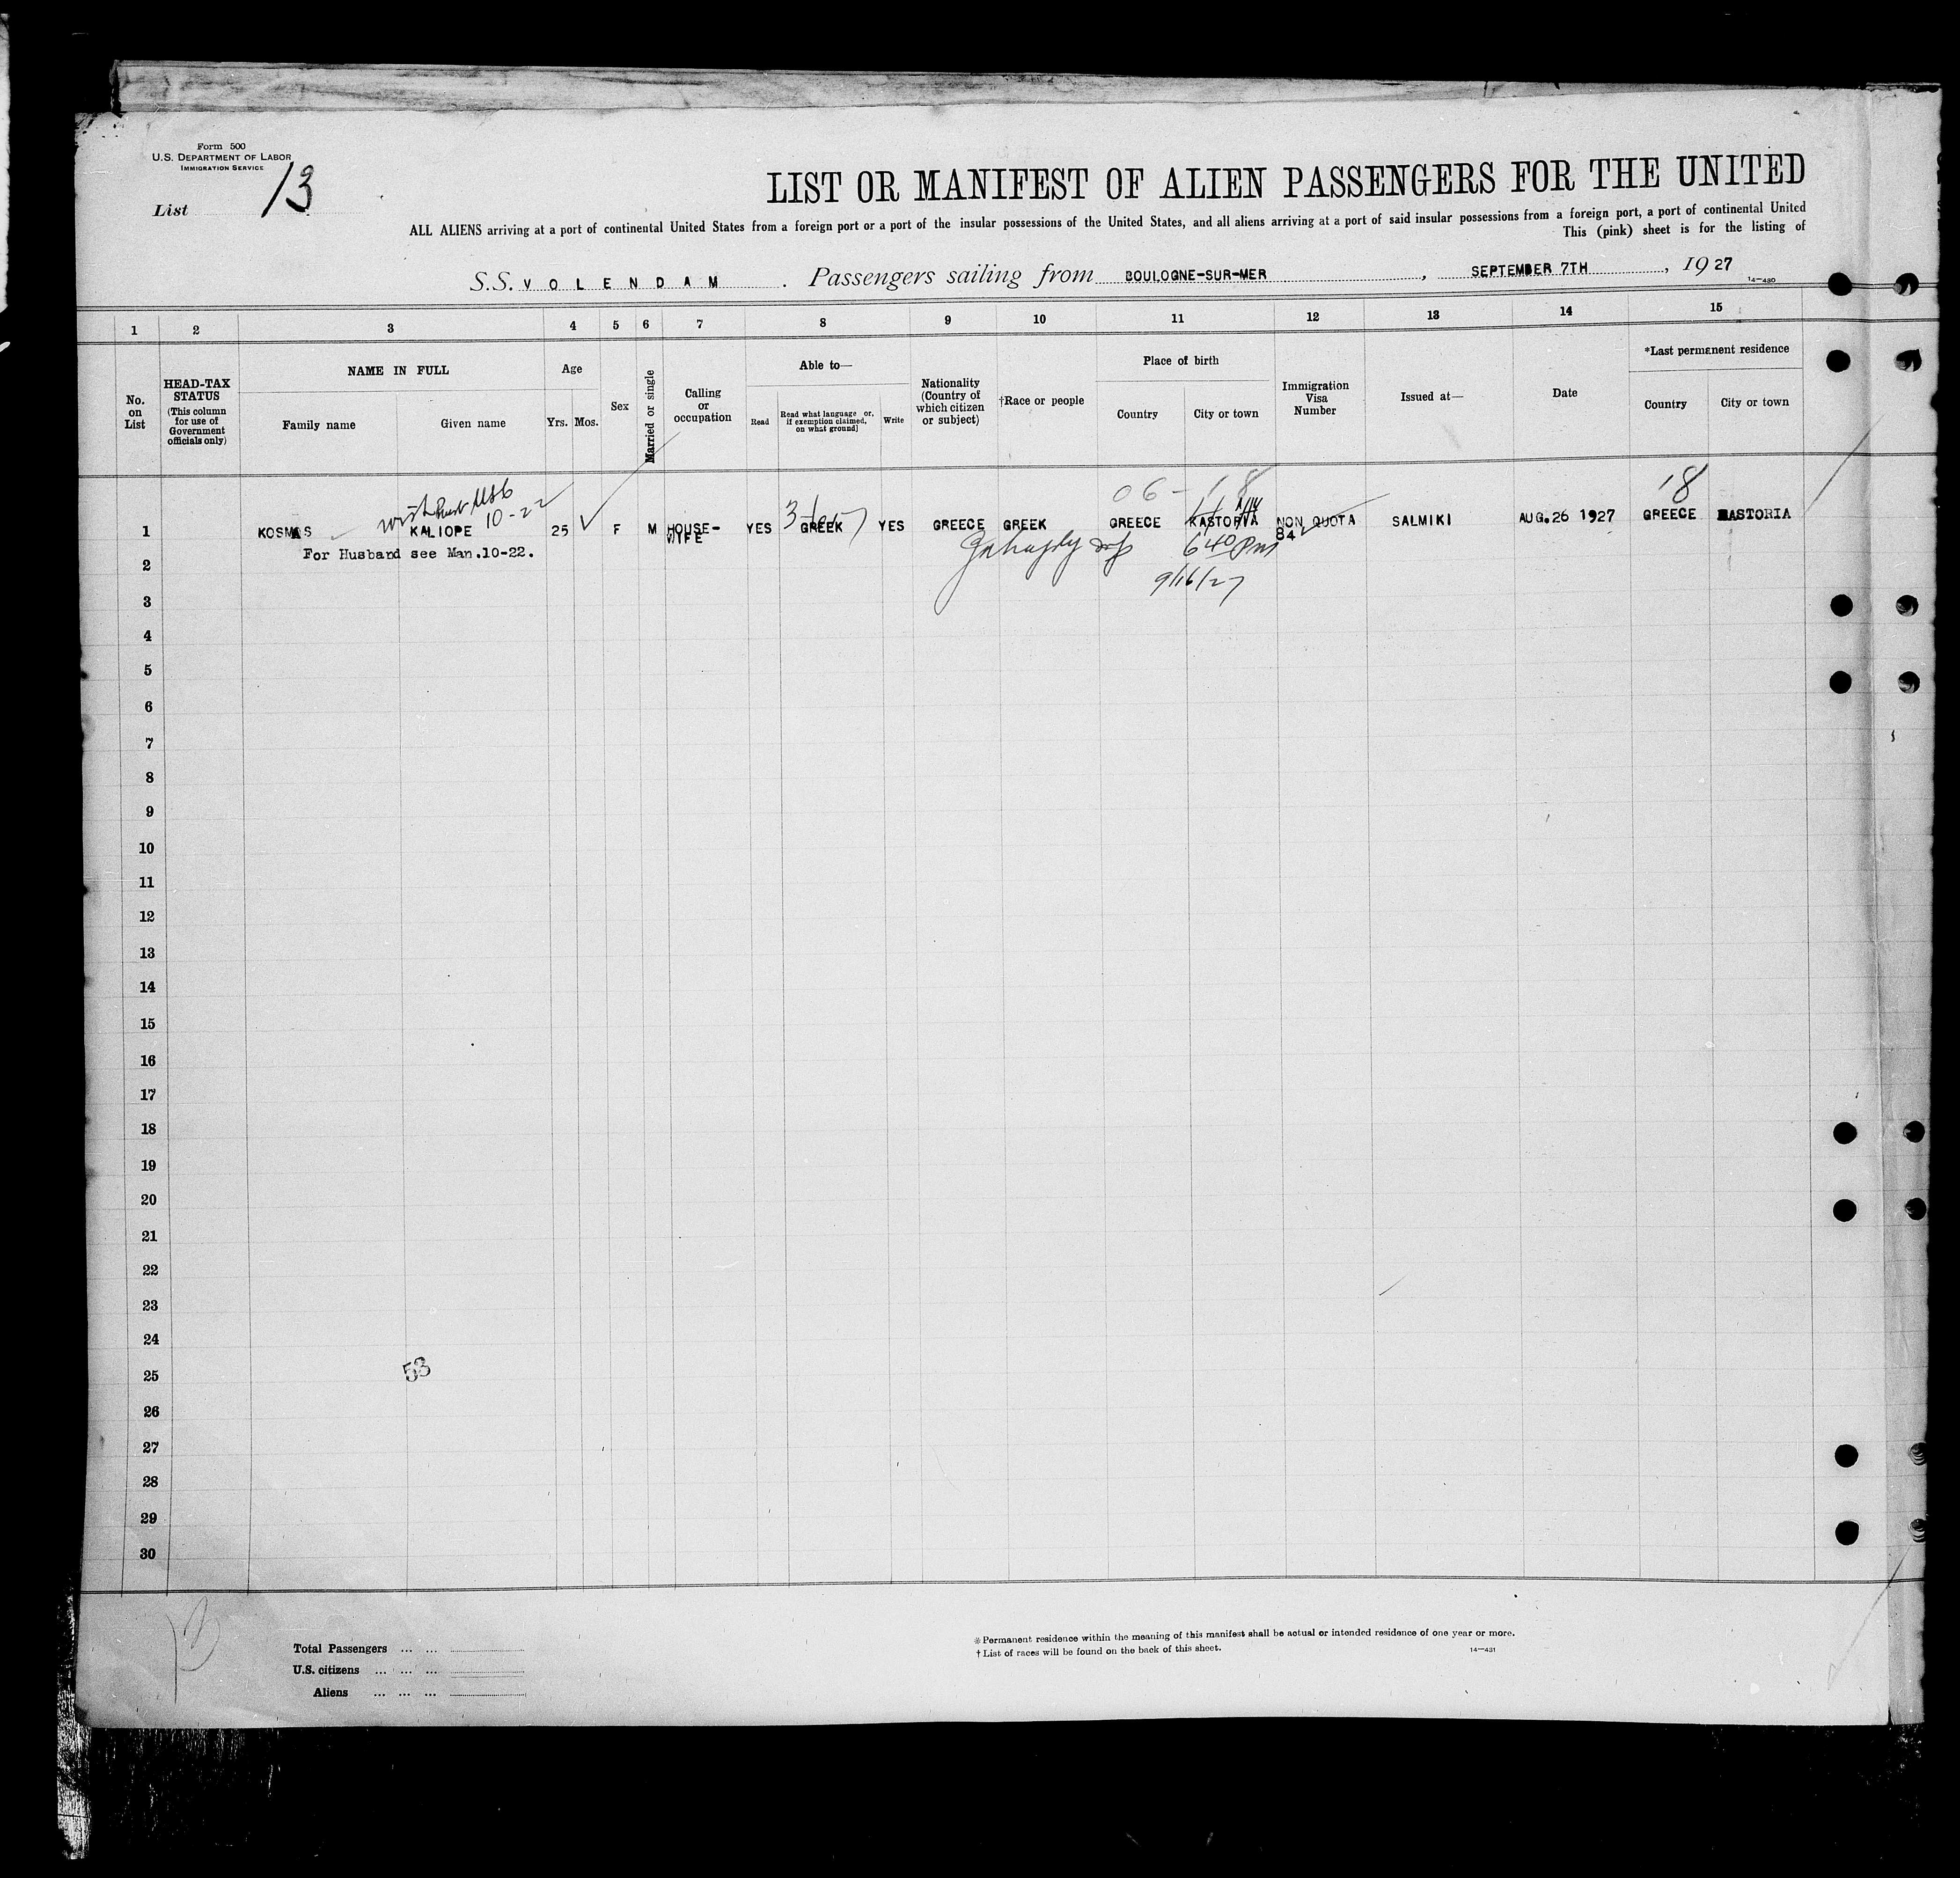 Form 500
U.S. DEPARTMENT OF LABOR
IMMIGRATION SERVICE
List 13
LIST OR MANIFEST OF ALIEN PASSENGERS FOR THE UNITED
ALL ALIENS arriving at a port of continental United States from a foreign port or a port of the insular possessions of the United States, and all aliens arriving at a port of said insular possessions from a foreign port, a port of continental United
This (pink) sheet is for the listing of
S.S. VOLENDAM . Passengers sailing from BOULOGNE-SUR-MER , SEPTEMBER 7TH , 1927
14—430
1 2 3 4 5 6 7 8 9 10 11 12 13 14 15
No. on List
HEAD-TAX STATUS
(This column for use of Government officials only)
NAME IN FULL
Family name Given name
Age
Yrs. Mos.
Sex
Married or single
Calling or occupation
Able to—
Read
Read what language or, if exemption claimed, on what ground]
Write
Nationality (Country of which citizen or subject)
†Race or people
Place of birth
Country City or town
Immigration Visa Number
Issued at—
Date
*Last permanent residence
Country City or town
10-22
06-18
18
1 KOSMAS KALIOPE 25 F M HOUSE-WIFE YES GREEK YES GREECE GREEK GREECE KASTORIA NON QUOTA 84 SALMIKI AUG.26 1927 GREECE KASTORIA
For Husband see Man.10-22.
640 Pm
9/16/27
2
3
4
5
6
7
8
9
10
11
12
13
14
15
16
17
18
19
20
21
22
23
24
25
26
27
28
29
30
53
13
Total Passengers ... ...
U.S. citizens ... ... ...
Aliens ... ... ...
* Permanent residence within the meaning of this manifest shall be actual or intended residence of one year or more.
† List of races will be found on the back of this sheet.
14—431